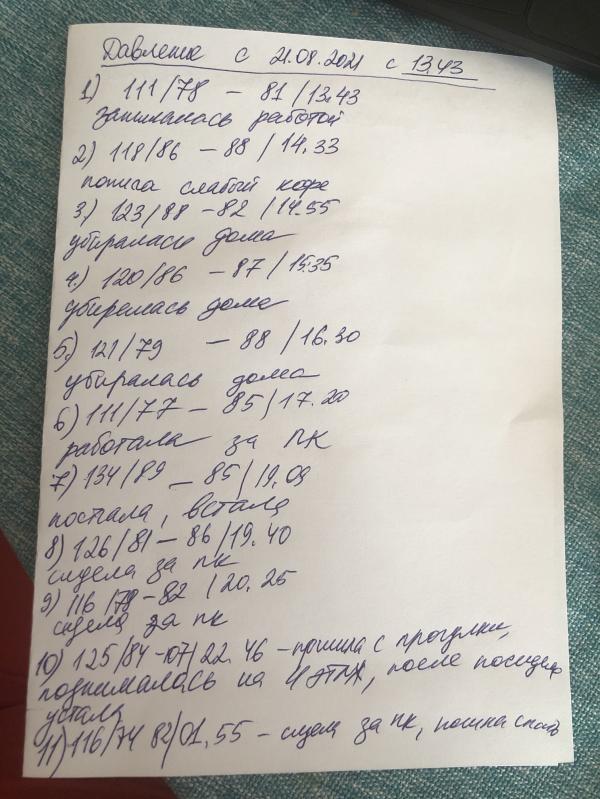 Давление с 21.08.2021 с 13.43
1) 111/78 – 81/13.43
занималась работой
2) 118/86 – 88/14.33
попила слабый кофе
3.) 123/88 – 82/14.55
убиралась дома
4.) 120/86 – 87/15:35
убиралась дома
5.) 121/79 – 88/16.30
убиралась дома
6) 111/77 – 85/17.20
работала за ПК
7) 134/89 – 85/19.09
поспала, встала
8) 126/81 – 86/19.40
сидела за пк
9) 116/78 – 82/20.25
сидела за пк
10) 125/84 -07/22.46 – пришла с прогулки,
поднималась на 4 этаж, после посидела
устала
11) 116/74 82/01.55 – сидела за пк, пошла спать